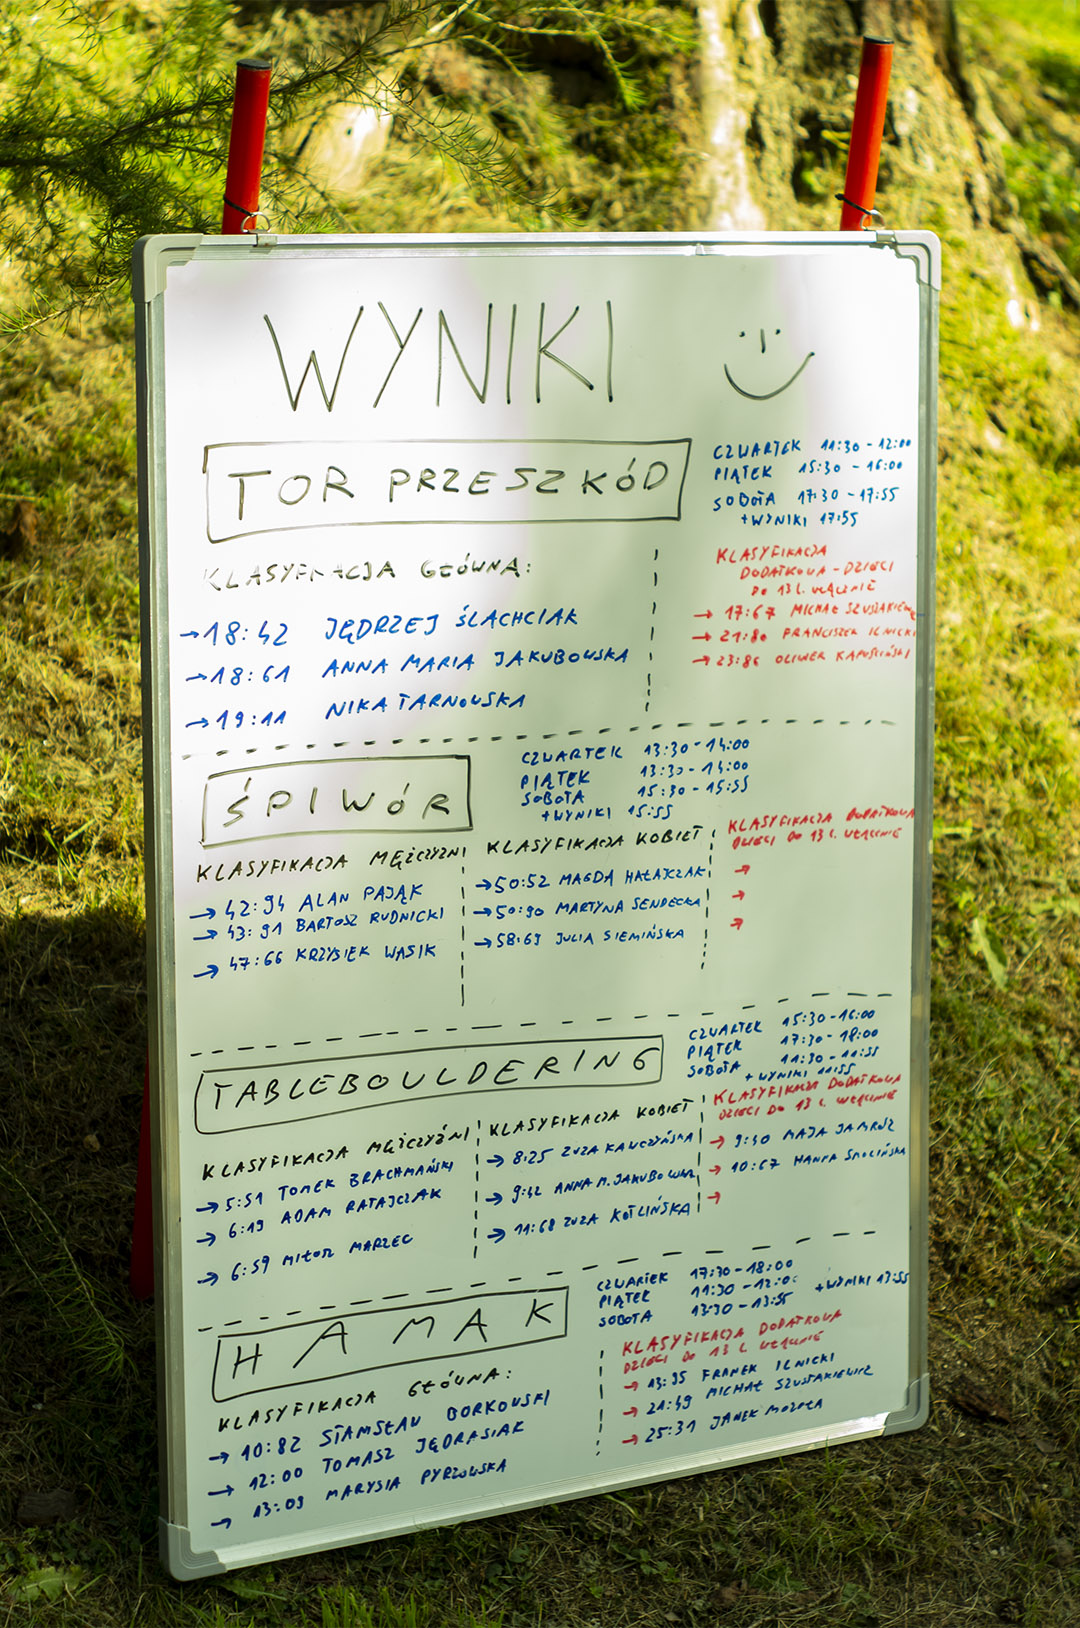 WYNIKI
TOR PRZESZKÓD
CZWARTEK 11:30 - 12:00
PIĄTEK 15:30 - 16:00
SOBOTA 17:30 - 17:55
+ WYNIKI 17:55
KLASYFIKACJA GŁÓWNA:
→ 18:42 JĘDRZEJ ŚLACHCIAK
→ 18:61 ANNA MARIA JAKUBOWSKA
→ 19:11 NIKA TARNOWSKA
KLASYFIKACJA
DODATKOWA - DZIECI
DO 13 L. WŁĄCZNIE
→ 17:67 MICHAŁ SZUSTAKIEWICZ
→ 21:80 FRANCISZEK ILNICKI
→ 23:86 OLIWER KAPUŚCIŃSKI
ŚPIWÓR
CZWARTEK 13:30 - 14:00
PIĄTEK 13:30 - 14:00
SOBOTA 15:30 - 15:55
+ WYNIKI 15:55
KLASYFIKACJA MĘŻCZYZNI
→ 42:94 ALAN PAJĄK
→ 43:91 BARTOSZ RUDNICKI
→ 47:66 KRZYSIEK WĄSIK
KLASYFIKACJA KOBIET
→ 50:52 MAGDA HAŁAJCZAK
→ 50:90 MARTYNA SENDECKA
→ 58:69 JULIA SIEMIŃSKA
KLASYFIKACJA DODATKOWA
DZIECI DO 13 L. WŁĄCZNIE
→
→
→
TABLEBOULDERING
CZWARTEK 15:30 - 16:00
PIĄTEK 17:30 - 18:00
SOBOTA 11:30 - 11:55
+ WYNIKI 11:55
KLASYFIKACJA MĘŻCZYŹNI
→ 5:51 TOMEK BRACHMAŃSKI
→ 6:19 ADAM RATAJCZAK
→ 6:59 MIŁOSZ MARZEC
KLASYFIKACJA KOBIET
→ 8:25 ZUZA KAWCZYŃSKA
→ 9:42 ANNA M. JAKUBOWSKA
→ 11:68 ZUZA KOTLIŃSKA
KLASYFIKACJA DODATKOWA
DZIECI DO 13 L. WŁĄCZNIE
→ 9:40 MAJA JAMRÓZ
→ 10:67 HANNA SMOLIŃSKA
→
HAMAK
CZWARTEK 17:30 - 18:00
PIĄTEK 11:30 - 12:00
SOBOTA 13:30 - 13:55 + WYNIKI 13:55
KLASYFIKACJA GŁÓWNA:
→ 10:82 STANISŁAW BORKOWSKI
→ 12:00 TOMASZ JĘDRASIAK
→ 13:09 MARYSIA PYRZOWSKA
KLASYFIKACJA DODATKOWA
DZIECI DO 13 L. WŁĄCZNIE
→ 13:95 FRANEK ILNICKI
→ 21:49 MICHAŁ SZUSTAKIEWICZ
→ 25:31 JANEK MOZOŁA